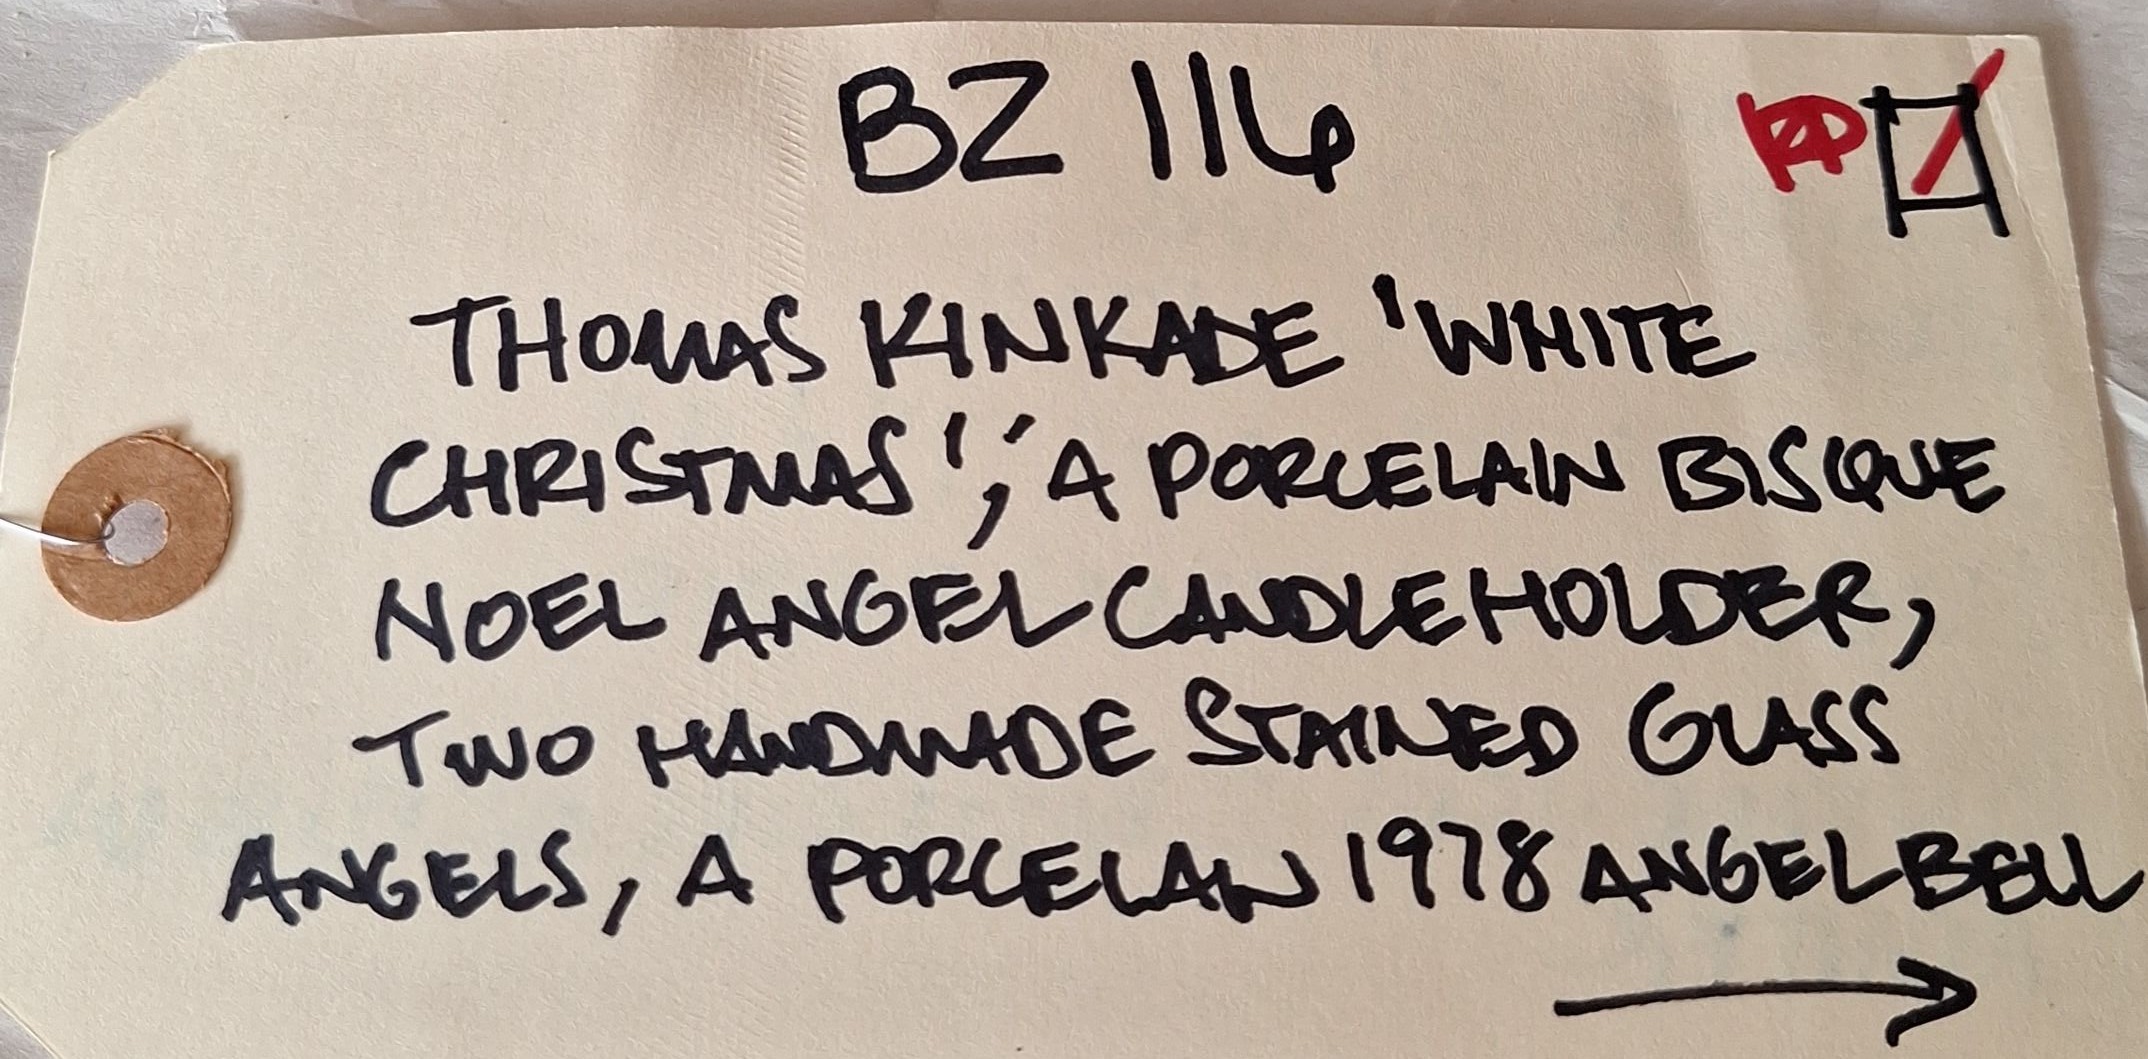 BZ 116
THOMAS KINKADE 'WHITE
CHRISTMAS', A PORCELAIN BISQUE
NOEL ANGEL CANDLEHOLDER,
TWO HANDMADE STAINED GLASS
ANGELS, A PORCELAIN 1978 ANGEL BELL